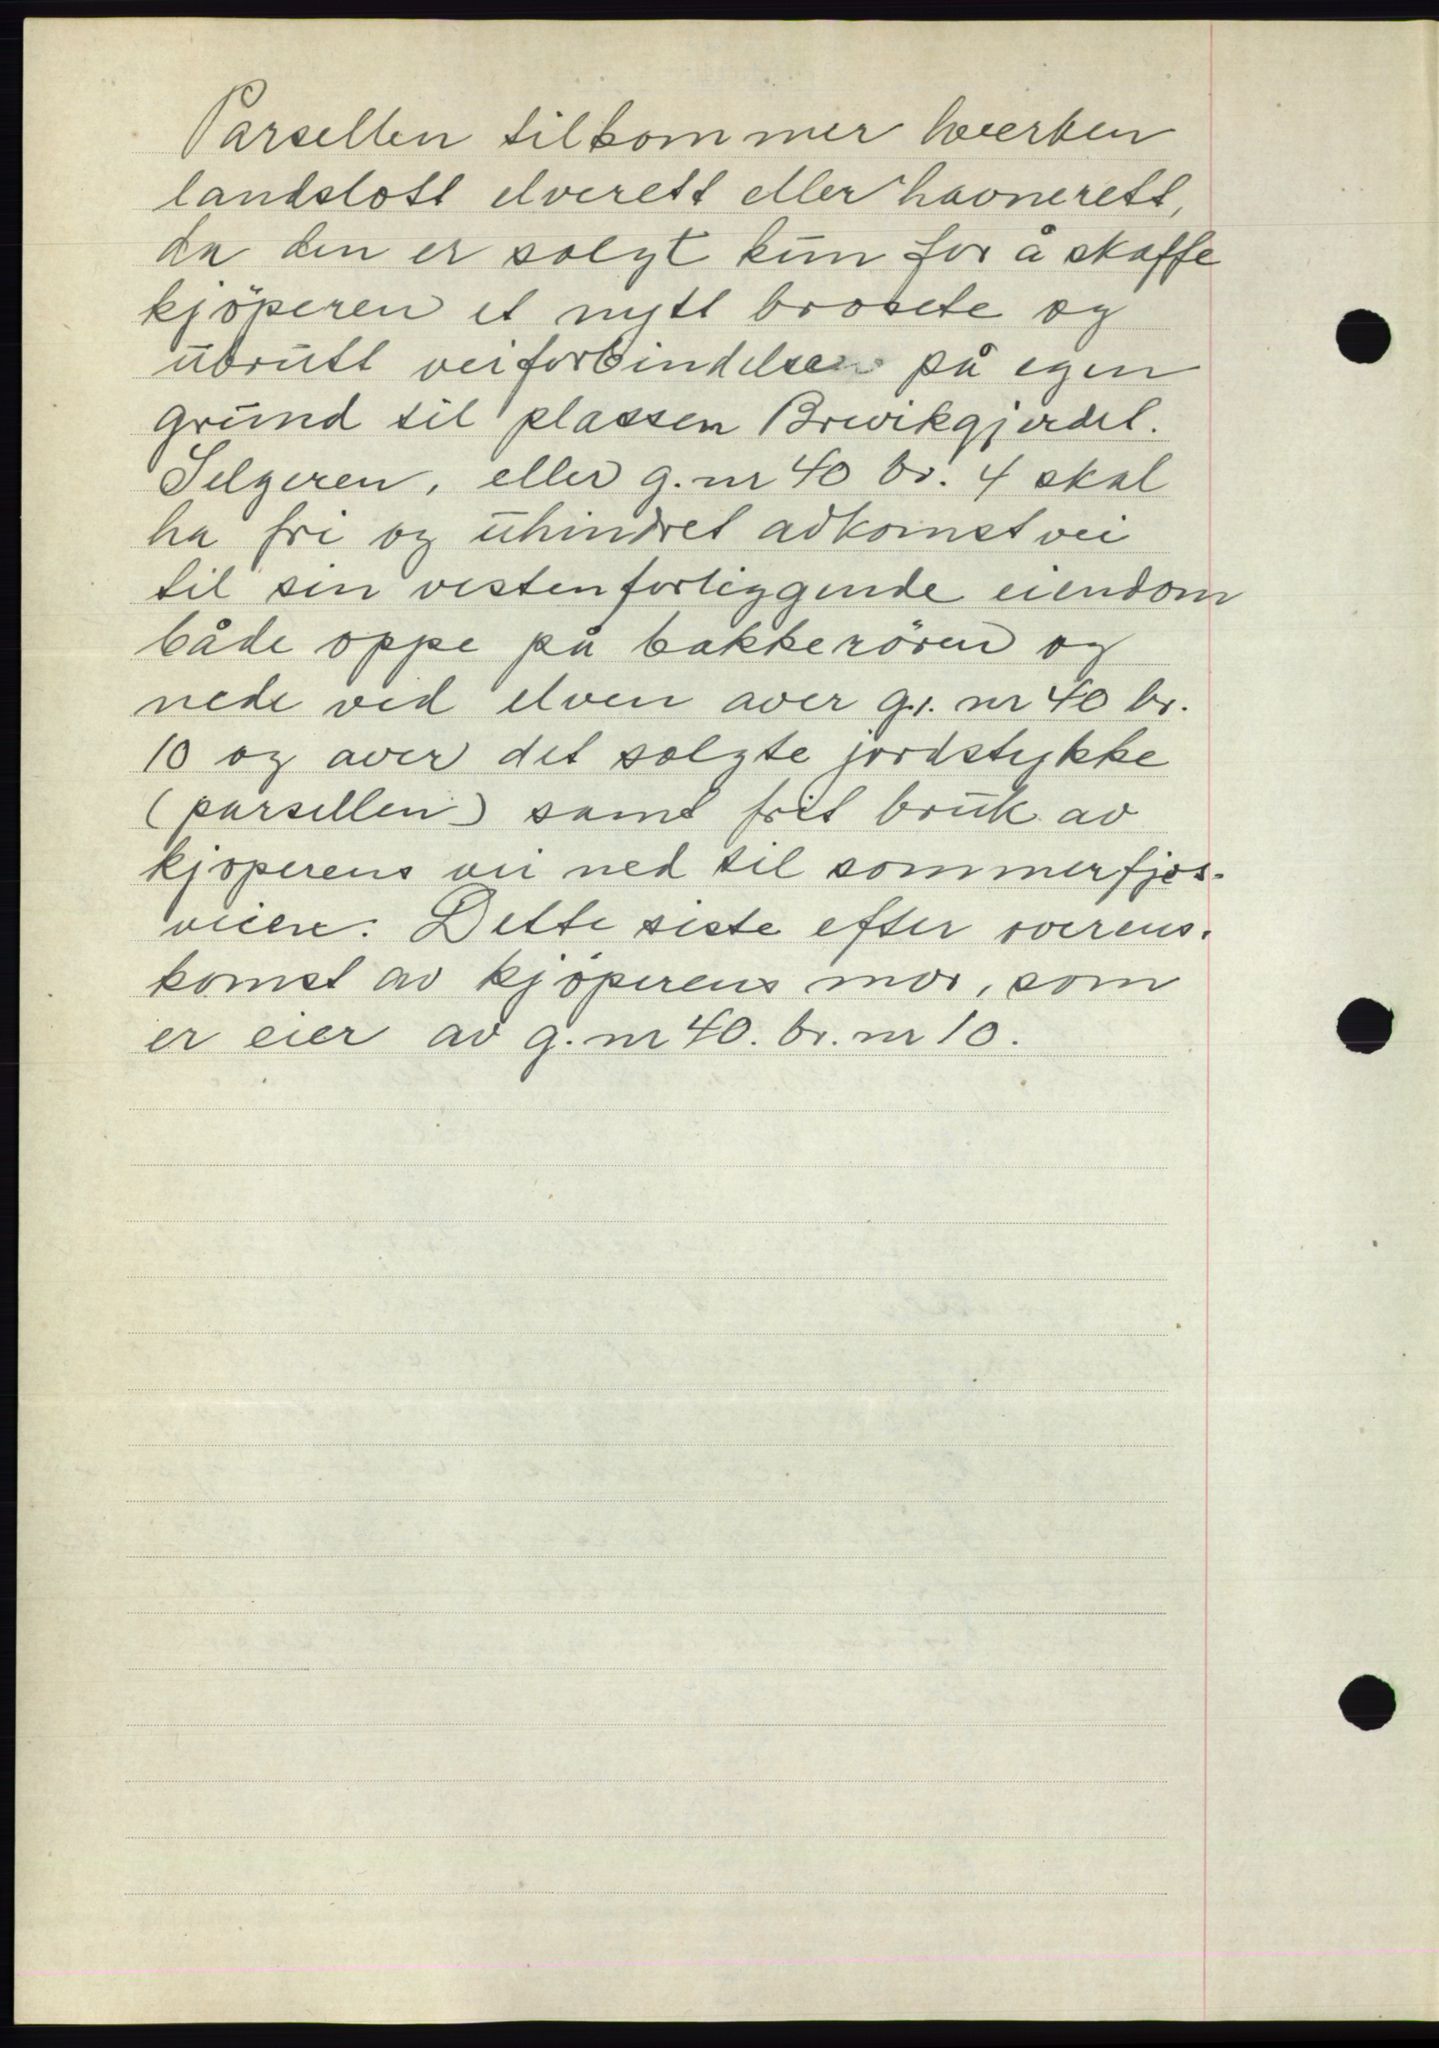 Parsellen tilkommer hverken
landslott elverett eller havnerett,
da den er solgt kun for å skaffe
kjöperen et nytt brosete og
ubrutt veiforbindelse på egen
grund til plassen Brevikgjerdet.
Selgeren, eller g.nr 40 br. 4 skal
ha fri og uhindret adkomstvei
til sin vestenforliggende eiendom
både oppe på bakkerören og
nede ved elven over g. nr 40 br.
10 og over det solgte jordstykke
(parsellen) samt frit bruk av
kjöperens vei ned til sommerfjøs-
veien. Dette siste efter overens-
komst av kjöperens mor, som
er eier av g. nr 40. br. nr 10.